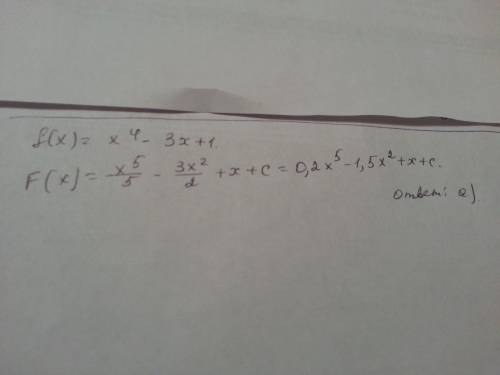 f(x) = x⁴ - 3x + 1.
F(x) = x⁵/5 - 3x²/2 + x + c = 0,2x⁵ - 1,5x² + x + c.
ответ: а)